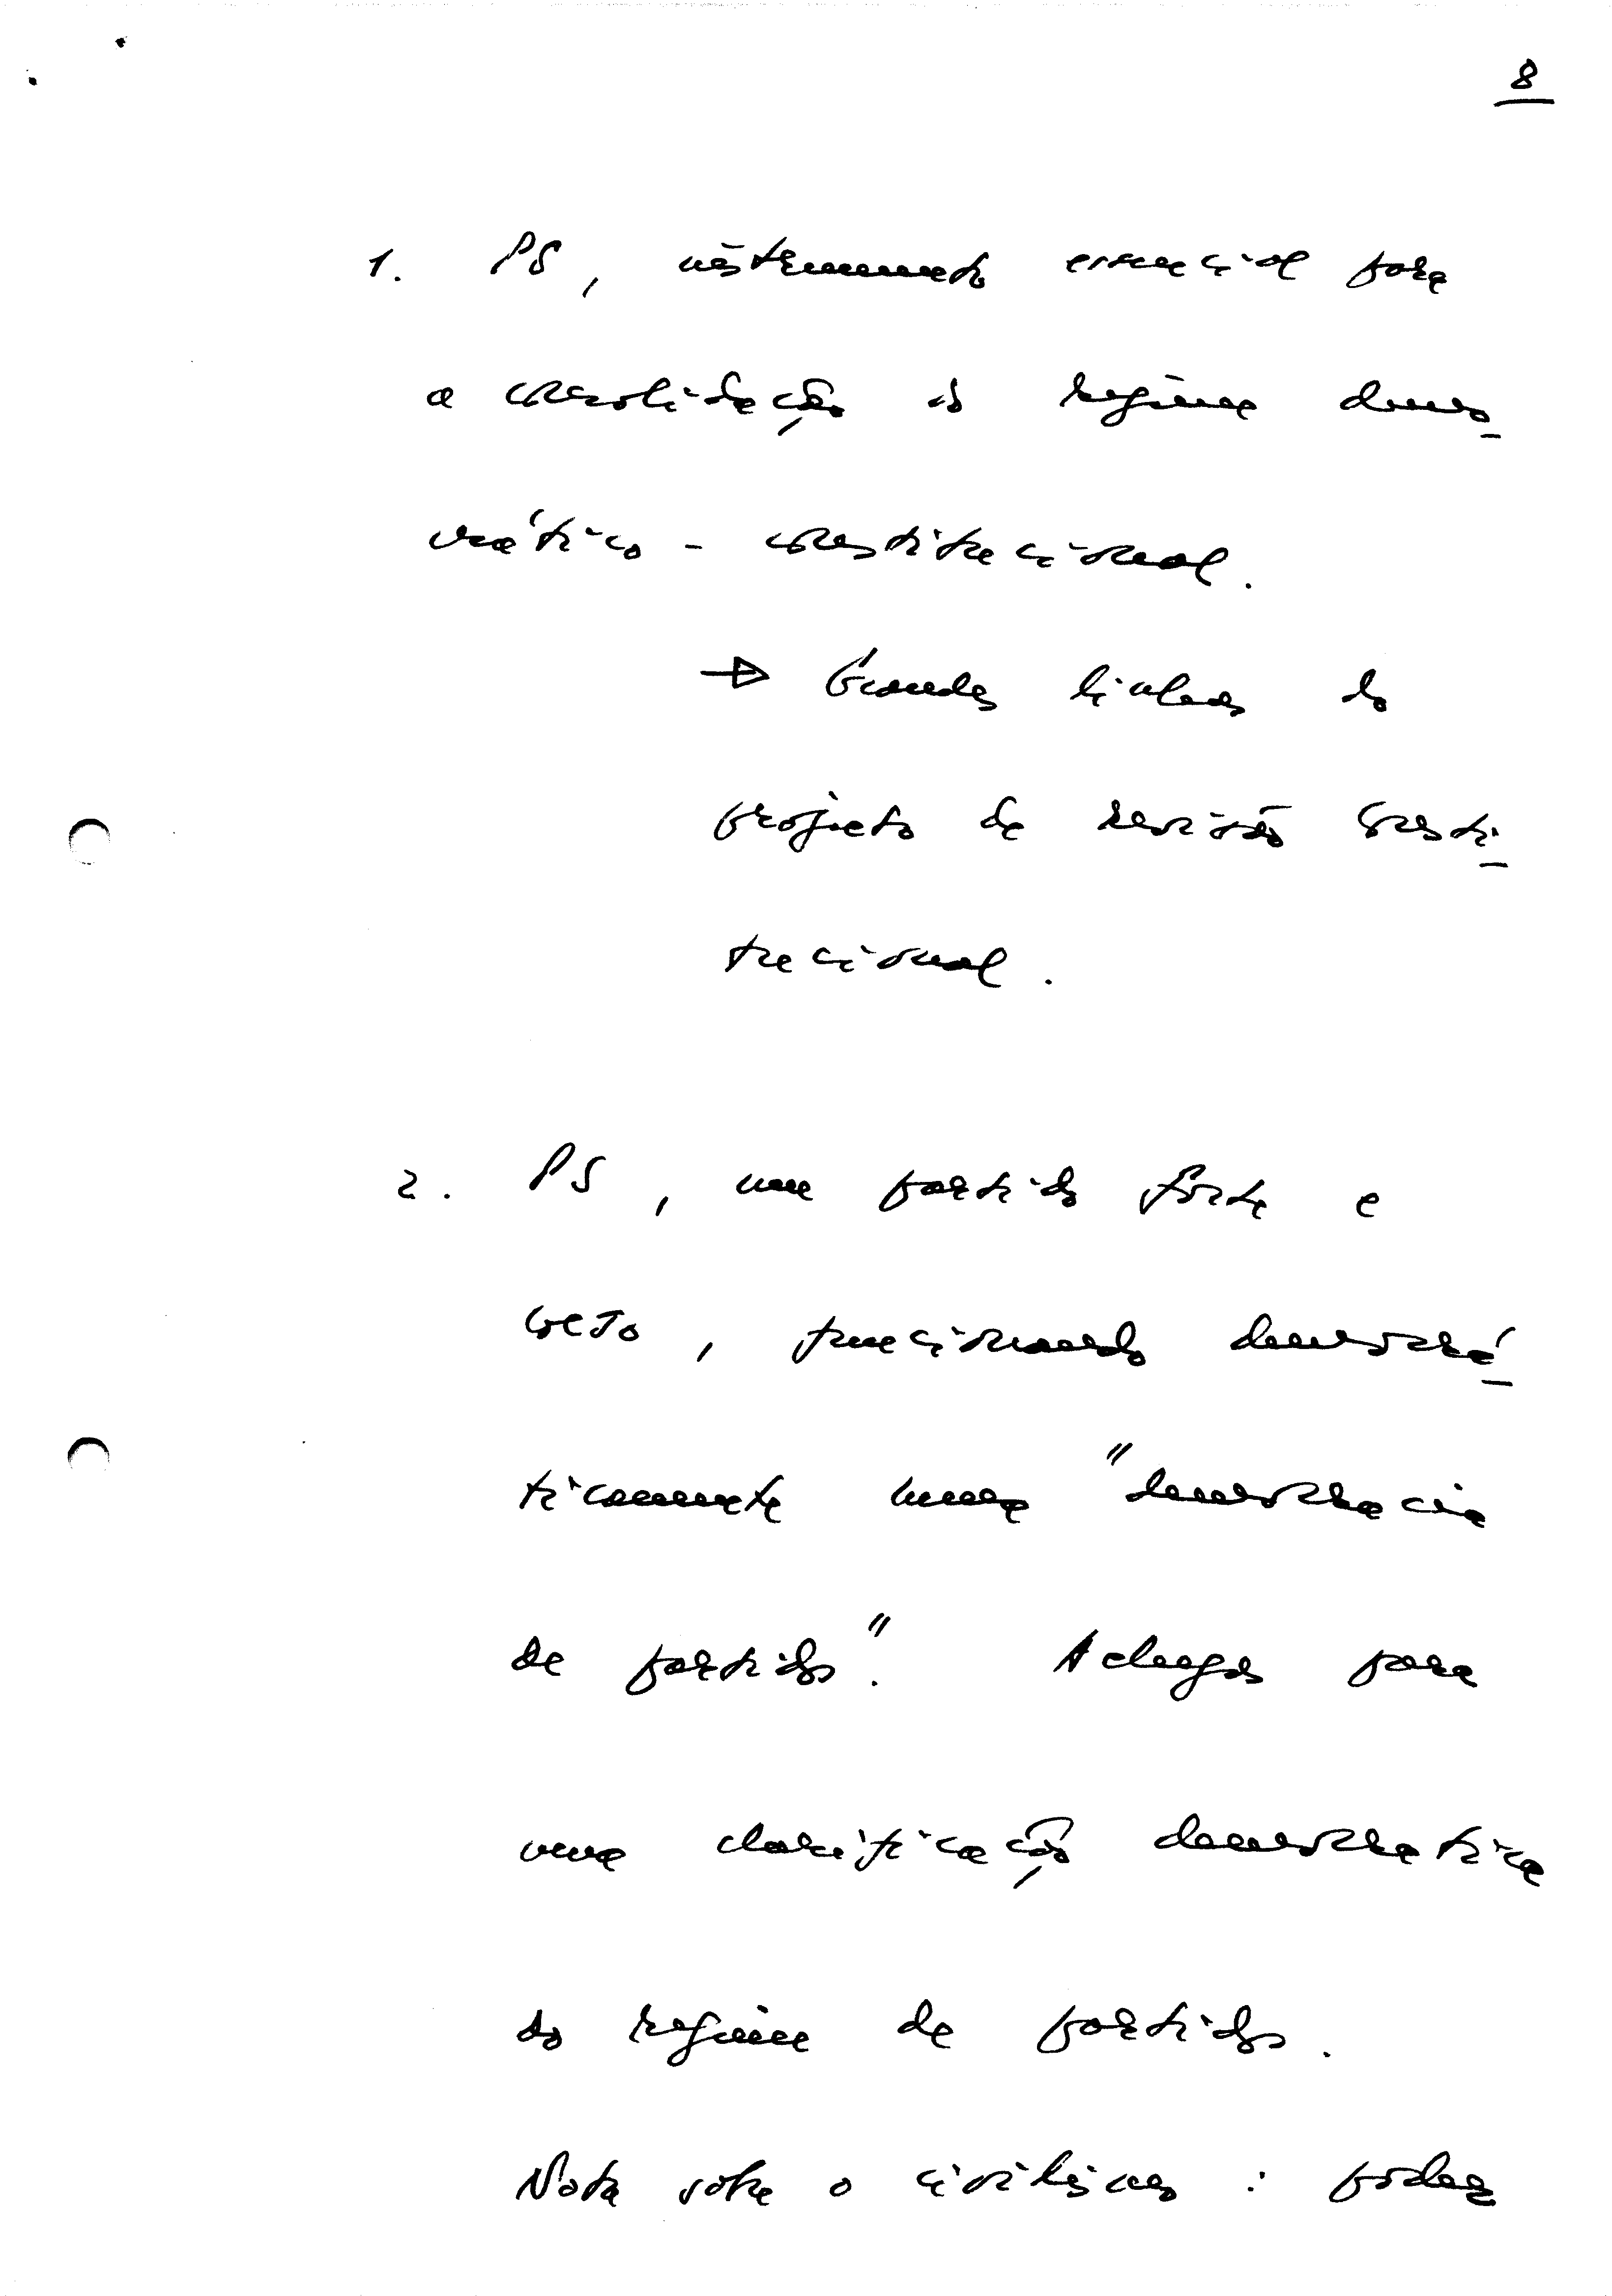 8
1. PS, instrumento essencial para
a consolidação do regime demo
crático - constitucional.
→ Grandes linhas do
projecto de revisão consti
tucional.
2. PS, um partido forte e
coeso, funcionando democrá
ticamente numa "democracia
de partidos". Achegas para
uma clarificação democratica
do regime de partidos.
Nota sobre o civilismo : poder